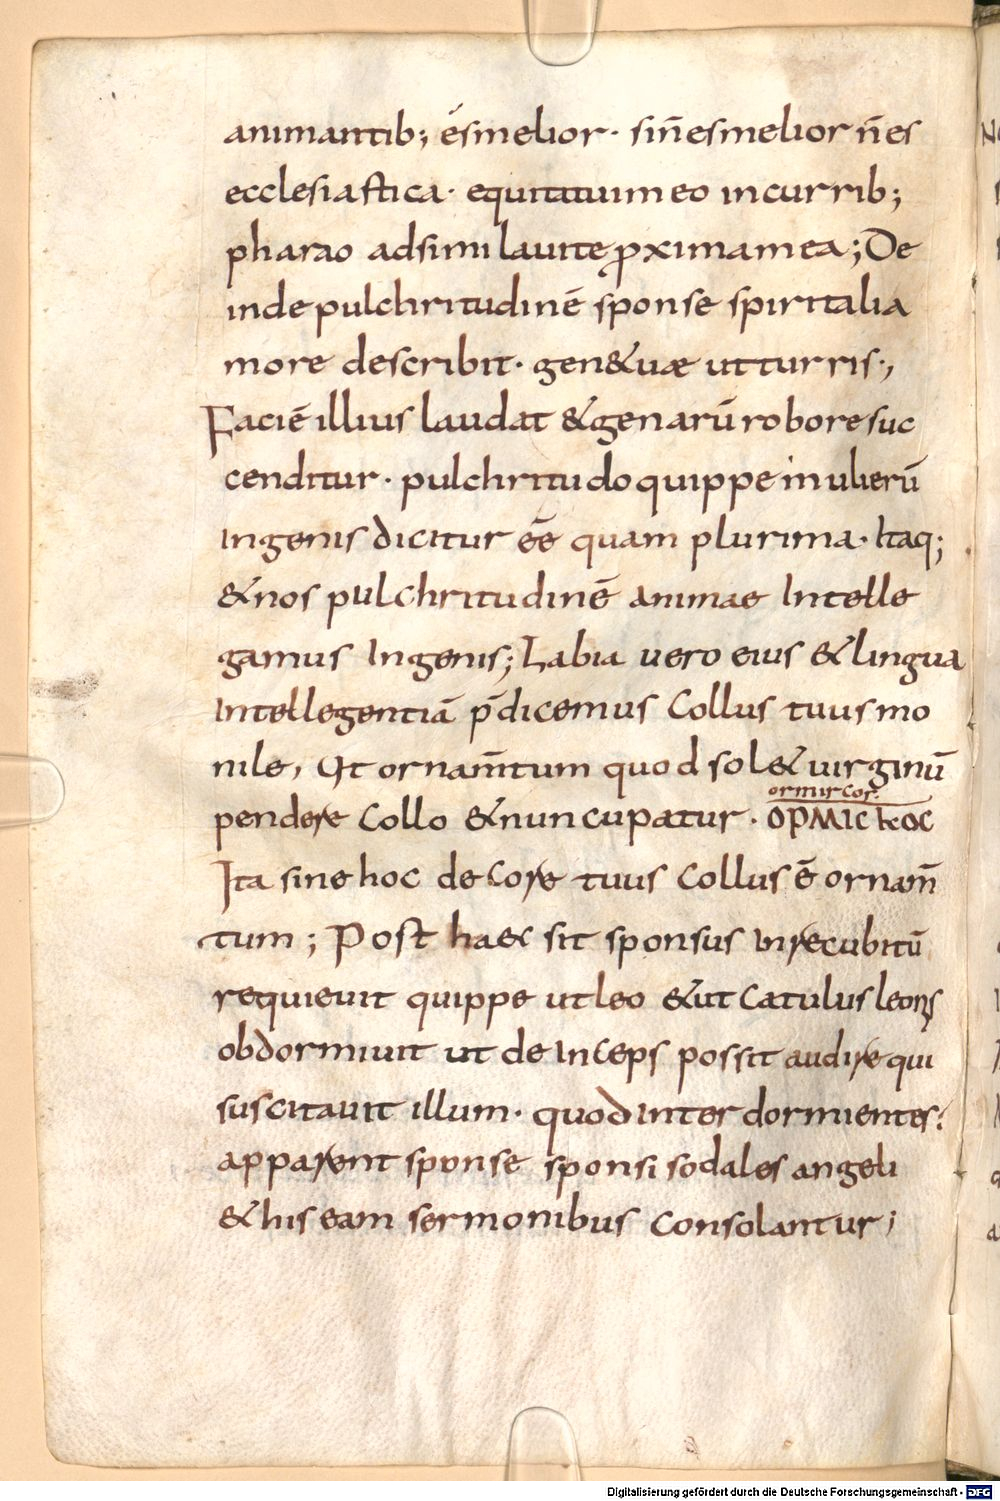 animantib; és melior· sin̄ es melior n̄ es
ecclesiastica· equitatuim eo in currib;
pharao adsimilauite ꝓxima mea; De
inde pulchritudinē sponse spiritalia
more describit· gen&uæ ut turris·,
Faciē illius laudat & genarū robore suc
cenditur· pulchritudo quippe mulierū
in genis dicitur eē quam plurima· Itaq;
& nos pulchritudinē animae Intelle
gamus In genis; Labia uero eius & lingua
Intellegentiā p̄dicemus Collus tuus mo
nile, Et ornam̄tum quod sol& uirginū
ormircor·
pendere Collo & nuncupatur· OPMIC kOC
Ita sine hoc de core tuus Collus ē ornam̄
tum; Post haec sit sponsus in recubitū
requieuit quippe ut leo & ut Catulus leonis
obdormiuit ut de Inceps possit audire qui
suscitauit illum· quod inter dormientes·
apparent sponse sponsi sodales angeli
& his eam sermonibus Consolantur;
Digitalisierung gefördert durch die Deutsche Forschungsgemeinschaft - DFG